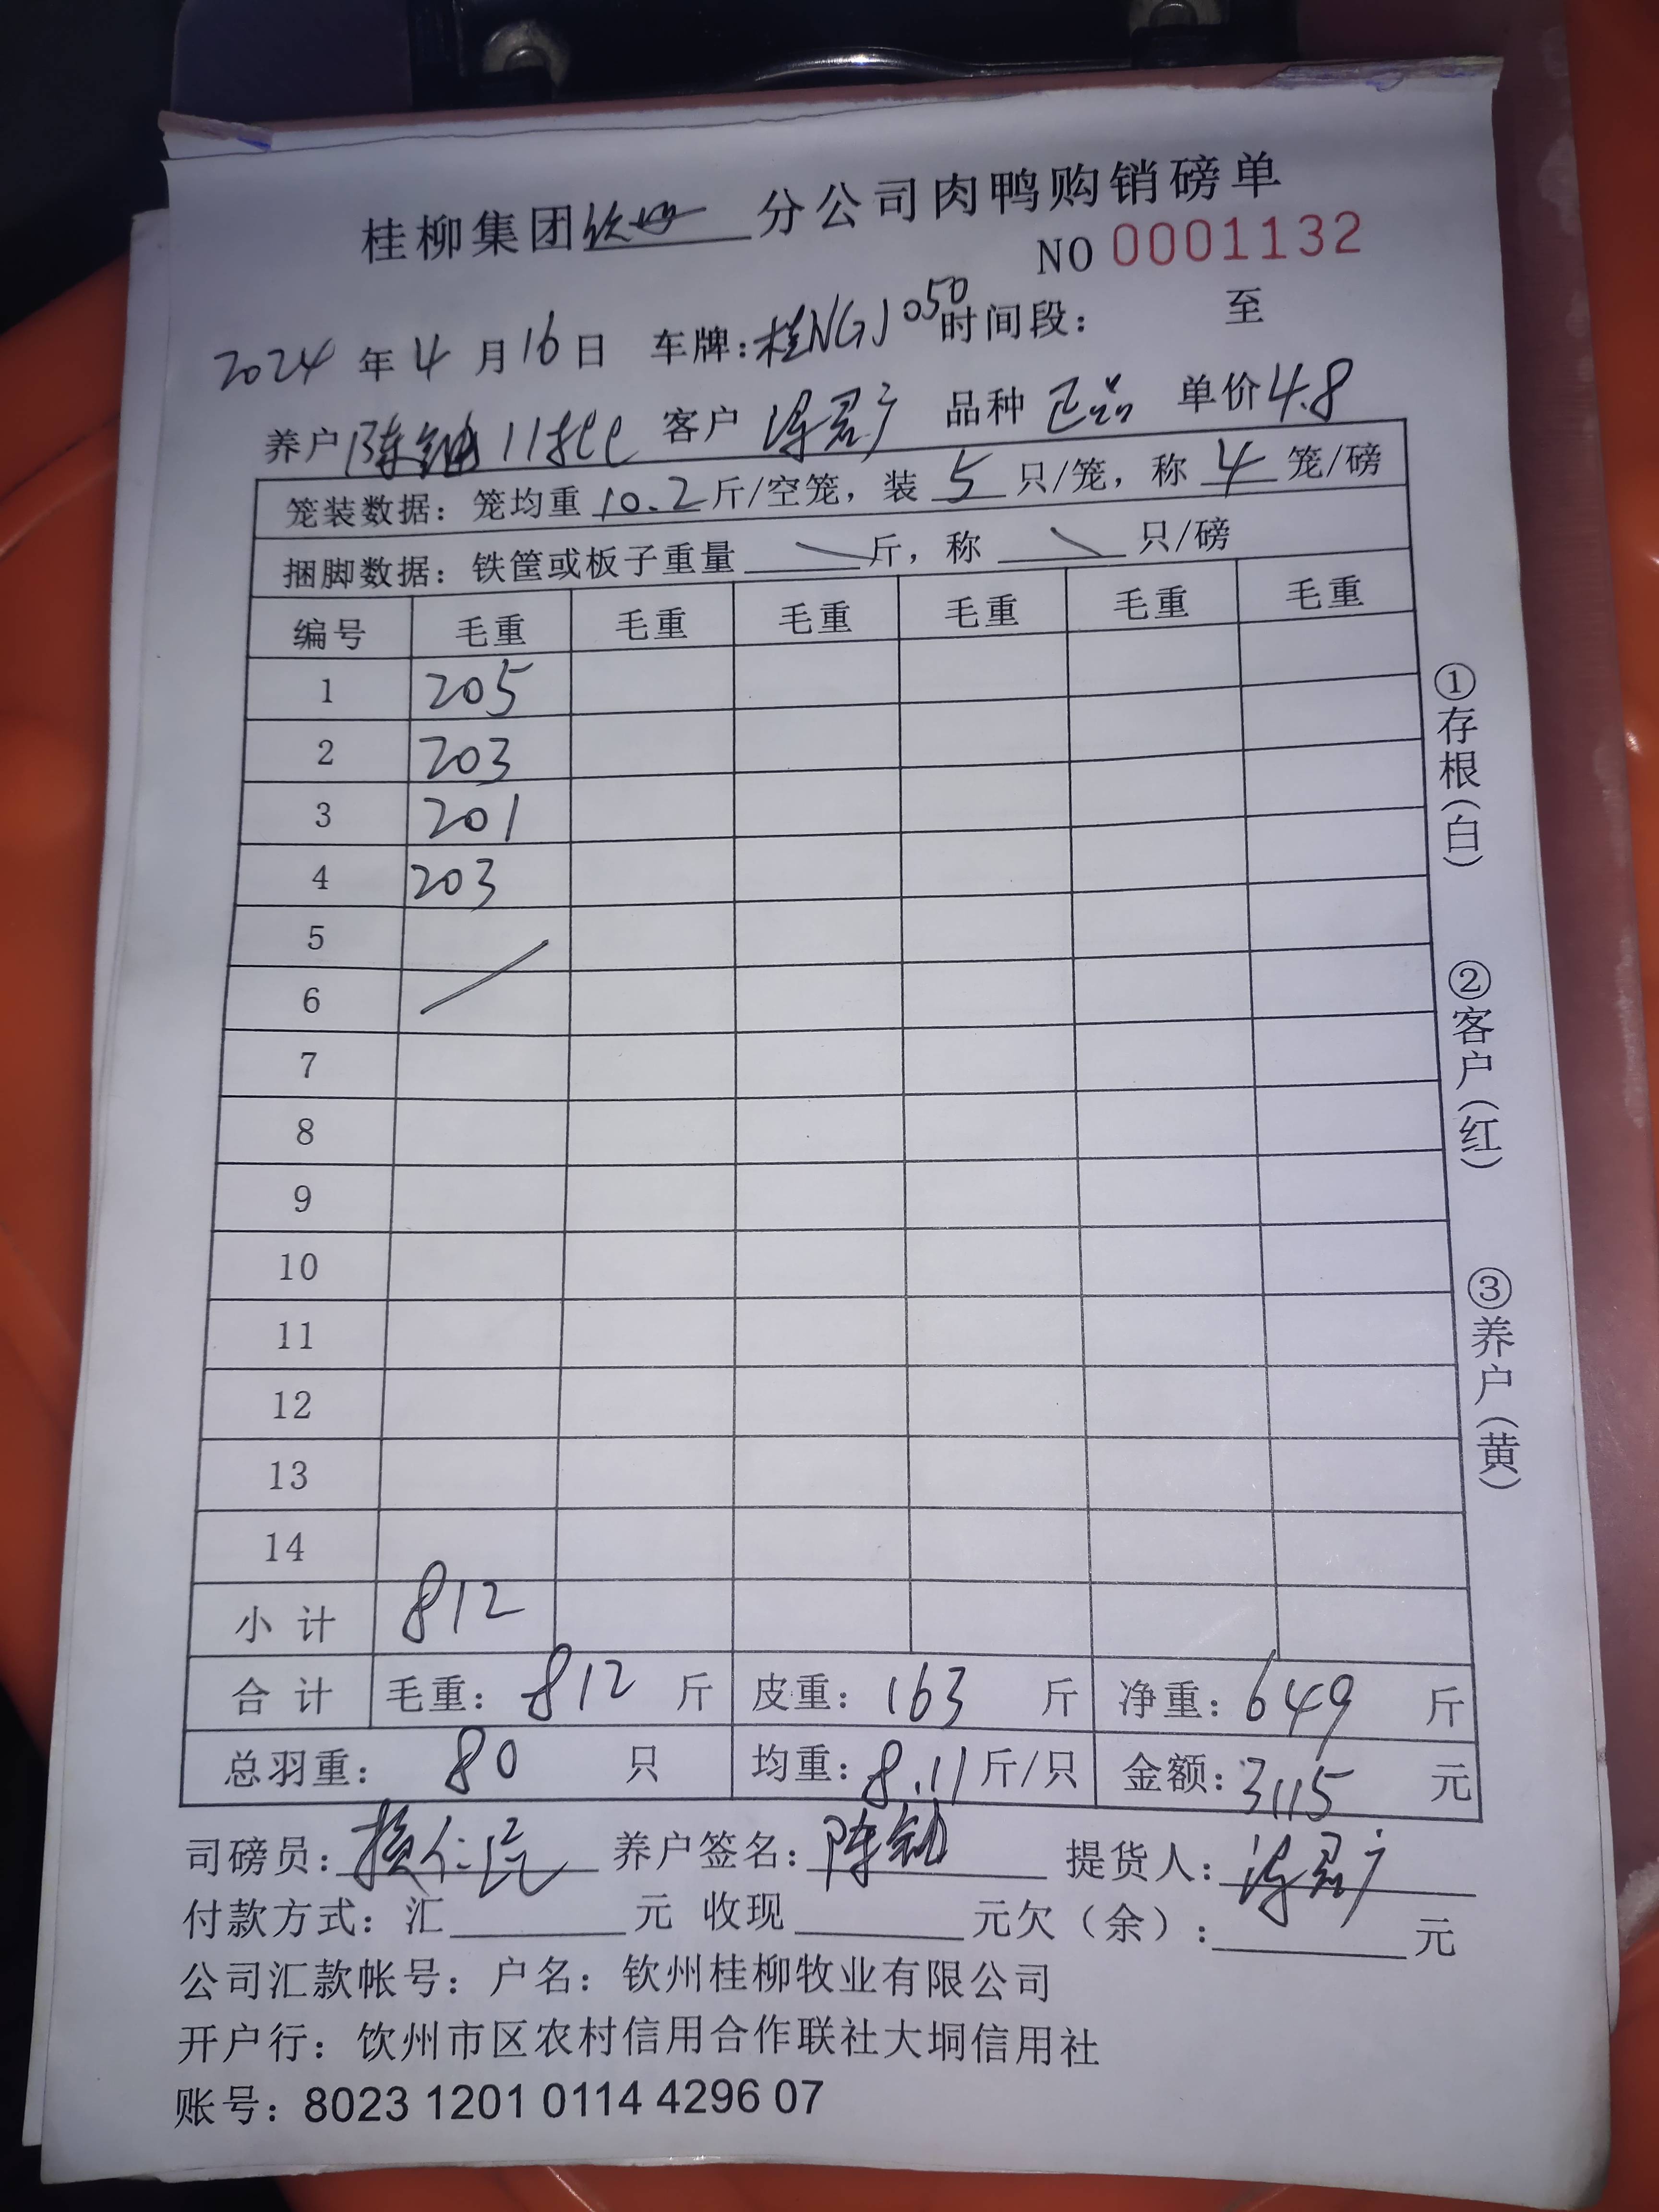 桂柳集团钦州分公司肉鸭购销磅单
NO 0001132
2024年4月16日 车牌:桂NGJ050 时间段: 至
养户 陈 11批 客户 品种 正品 单价 4.8
笼装数据: 笼均重 10.2 斤/空笼, 装 5 只/笼, 称 4 笼/磅
捆脚数据: 铁筐或板子重量 斤, 称 只/磅
编号 毛重 毛重 毛重 毛重 毛重 毛重
1 205
2 203
3 201
4 203
5
6
7
8
9
10
11
12
13
14
小计 812
合计 毛重: 812 斤 皮重: 163 斤 净重: 649 斤
总羽重: 80 只 均重: 8.11 斤/只 金额: 3115 元
司磅员: 养户签名: 陈 提货人:
付款方式: 汇 元 收现 元欠(余): 元
公司汇款帐号: 户名: 钦州桂柳牧业有限公司
开户行: 饮州市区农村信用合作联社大垌信用社
账号: 8023 1201 0114 4296 07
①存根(白)
②客户(红)
③养户(黄)